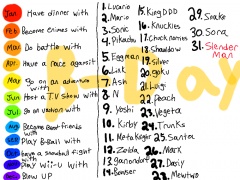 Jan Have dinner with
Feb Become Enimes with
Mar Do battle with
Apr Have a race against
May Go on an adventure with
Jun Host a T.V Show with
Jul Go on vacation with
Become Best friends with
Play B-Ball with
Have a snowball fight with
Play Wii-U with
Blow UP
1. Lucario
2. Mario
3. Sonic
4. Pikachu
5. Eggman
6. Link
7. Ash
8. N
9. Yoshi
10. Kirby
11. Meta Knight
12. Zelda
13. ganondorf
14. Bowser
15. King DDD
16. Knuckles
17. Chuck norris
18. Shadow
19. Silver
20. goku
21. Luigi
22. Peach
23. Vegeta
24. Trunks
25. Santa
26. Mark
27. Daisy
28. Mewtwo
29. Snake
30. Sora
31. Slender Man
Day